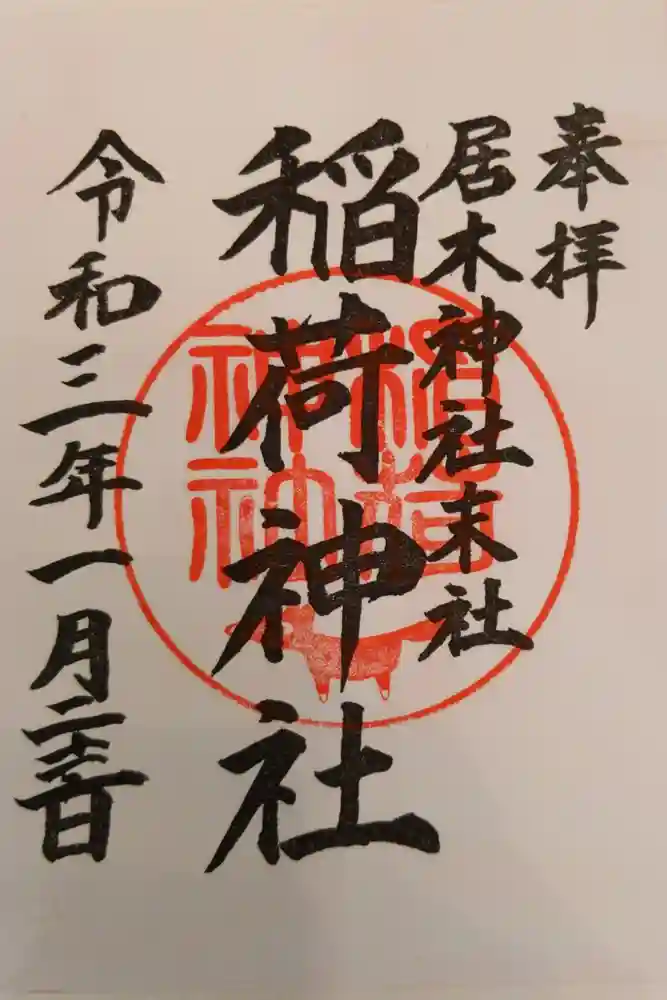 奉拝
居木神社末社
稲荷神社
令和三年一月二十日